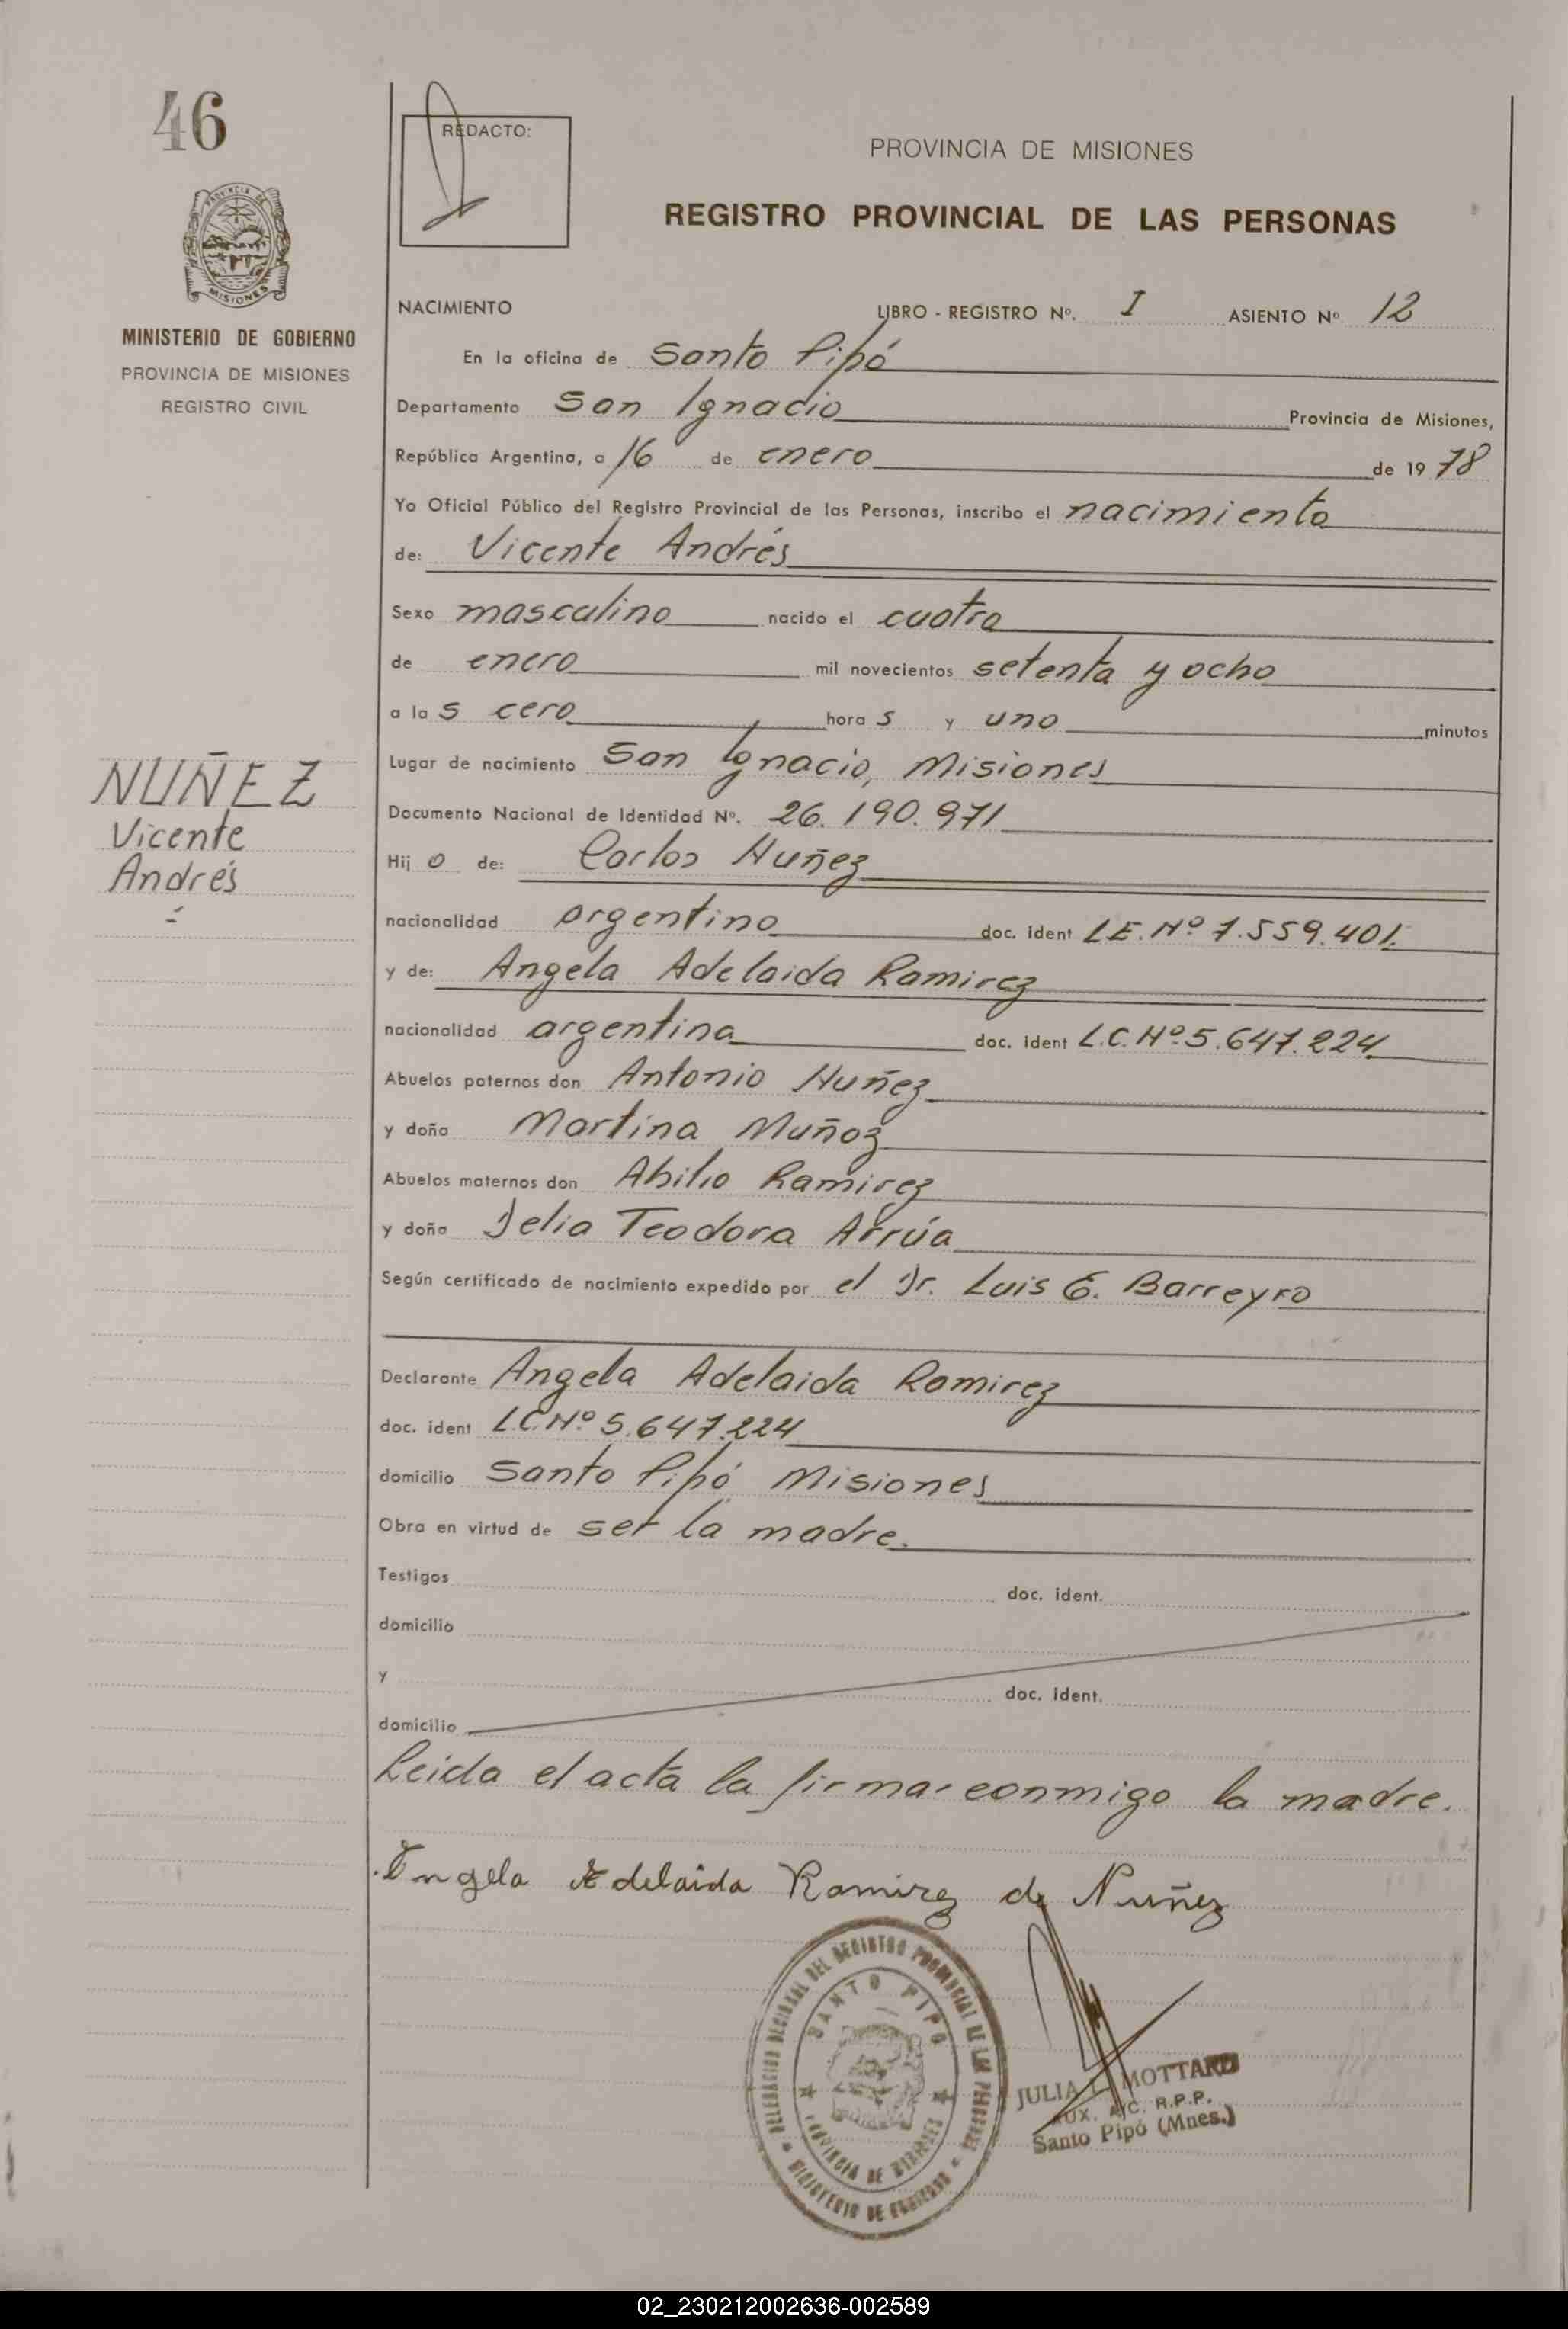 46
REDACTO:
PROVINCIA DE MISIONES
REGISTRO PROVINCIAL DE LAS PERSONAS
PROVINCIA DE
MISIONES
MINISTERIO DE GOBIERNO
PROVINCIA DE MISIONES
REGISTRO CIVIL
NACIMIENTO LIBRO - REGISTRO Nº. I ASIENTO Nº 12
En la oficina de Santo Pipó
Departamento San Ignacio Provincia de Misiones,
República Argentina, a 16 de enero de 1978
Yo Oficial Público del Registro Provincial de las Personas, inscribo el nacimiento
de: Vicente Andrés
Sexo masculino nacido el cuatro
de enero mil novecientos setenta y ocho
a las cero horas y uno minutos
Lugar de nacimiento San Ignacio, Misiones
NUÑEZ
Vicente
Andrés
Documento Nacional de Identidad Nº. 26.190.971
Hijo de: Carlos Nuñez
nacionalidad argentino doc. ident L.E. Nº 7.559.401.
y de: Angela Adelaida Ramirez
nacionalidad argentina doc. ident L.C. Nº 5.647.224
Abuelos paternos don Antonio Nuñez
y doña Martina Muñoz
Abuelos maternos don Abilio Ramirez
y doña Delia Teodora Arrúa
Según certificado de nacimiento expedido por el Dr. Luis E. Barreyro
Declarante Angela Adelaida Ramirez
doc. ident L.C. Nº 5.647.224
domicilio Santo Pipó Misiones
Obra en virtud de ser la madre.
Testigos doc. ident.
domicilio
y doc. ident.
domicilio
Leida el acta la firma conmigo la madre.
Angela Adelaida Ramirez de Nuñez
DELEGACION REGIONAL DEL REGISTRO PROVINCIAL DE LAS PERSONAS
SANTO PIPO
PROVINCIA DE MISIONES
MINISTERIO DE GOBIERNO
JULIA MOTTARD
AUX. A/C. R.P.P.
Santo Pipó (Mnes.)
02_230212002636-002589